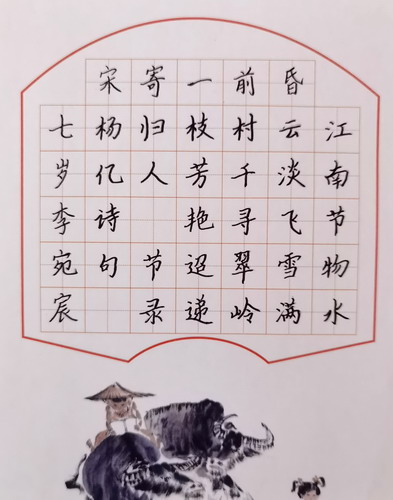 江南节物水
昏云淡飞雪满
前村千寻翠岭
一枝芳艳迢递
寄归人 节录
宋杨亿诗句
七岁李宛宸